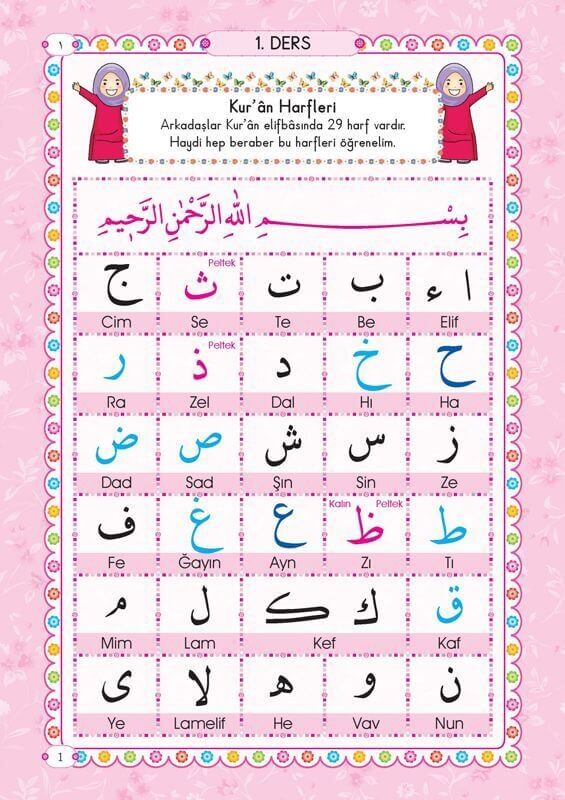 ١
1. DERS
Kur'ân Harfleri
Arkadaşlar Kur'ân elifbâsında 29 harf vardır.
Haydi hep beraber bu harfleri öğrenelim.
بِسْمِ اللّٰهِ الرَّحْمٰنِ الرَّحٖيمِ
Peltek
ا ء ب ت ث ج
Elif Be Te Se Cim
Peltek
ح خ د ذ ر
Ha Hı Dal Zel Ra
ز س ش ص ض
Ze Sin Şın Sad Dad
Peltek Kalın
ط ظ ع غ ف
Tı Zı Ayn Ğayın Fe
ق ك ڪ ل م
Kaf Kef Lam Mim
ن و ه لا ى
Nun Vav He Lamelif Ye
1